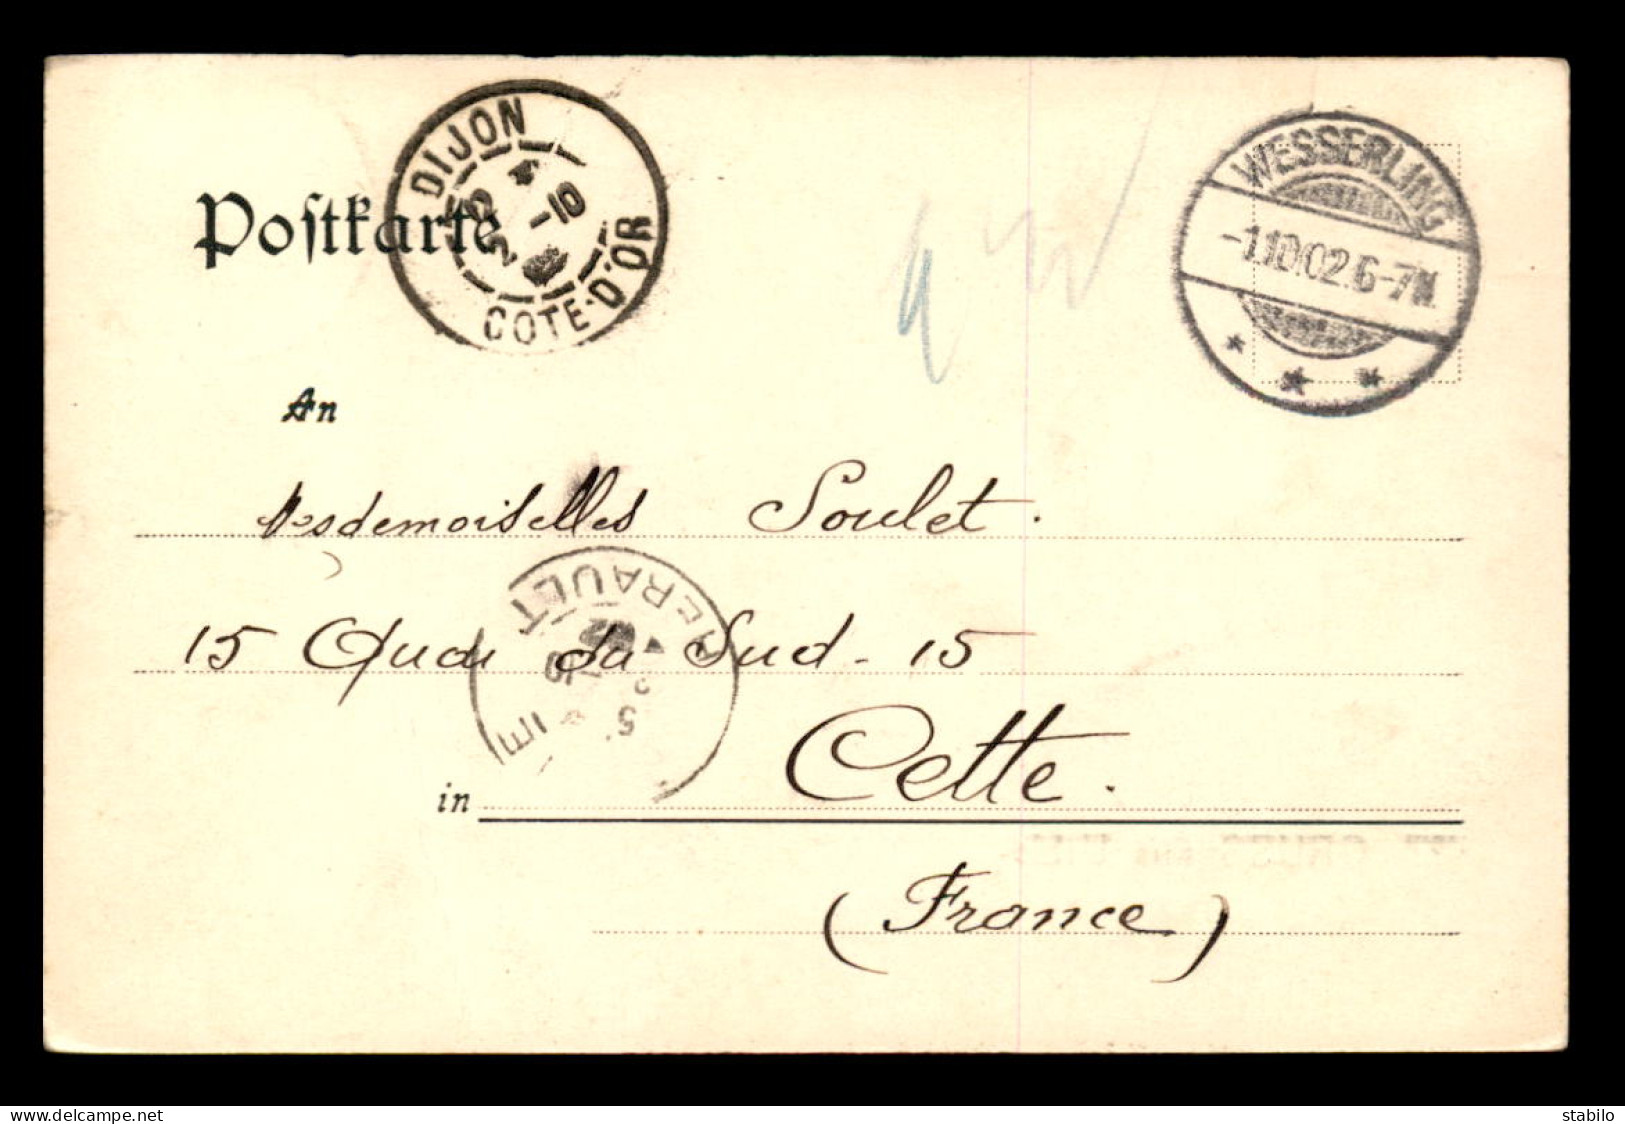 Postkarte
DIJON
COTE-D'OR
WESSERLING
-1.10.02.6-7N.
An
Mesdemoiselles Soulet.
HERAULT
15 Quai du Sud - 15
in Cette.
(France)
www.delcampe.net
stabilo